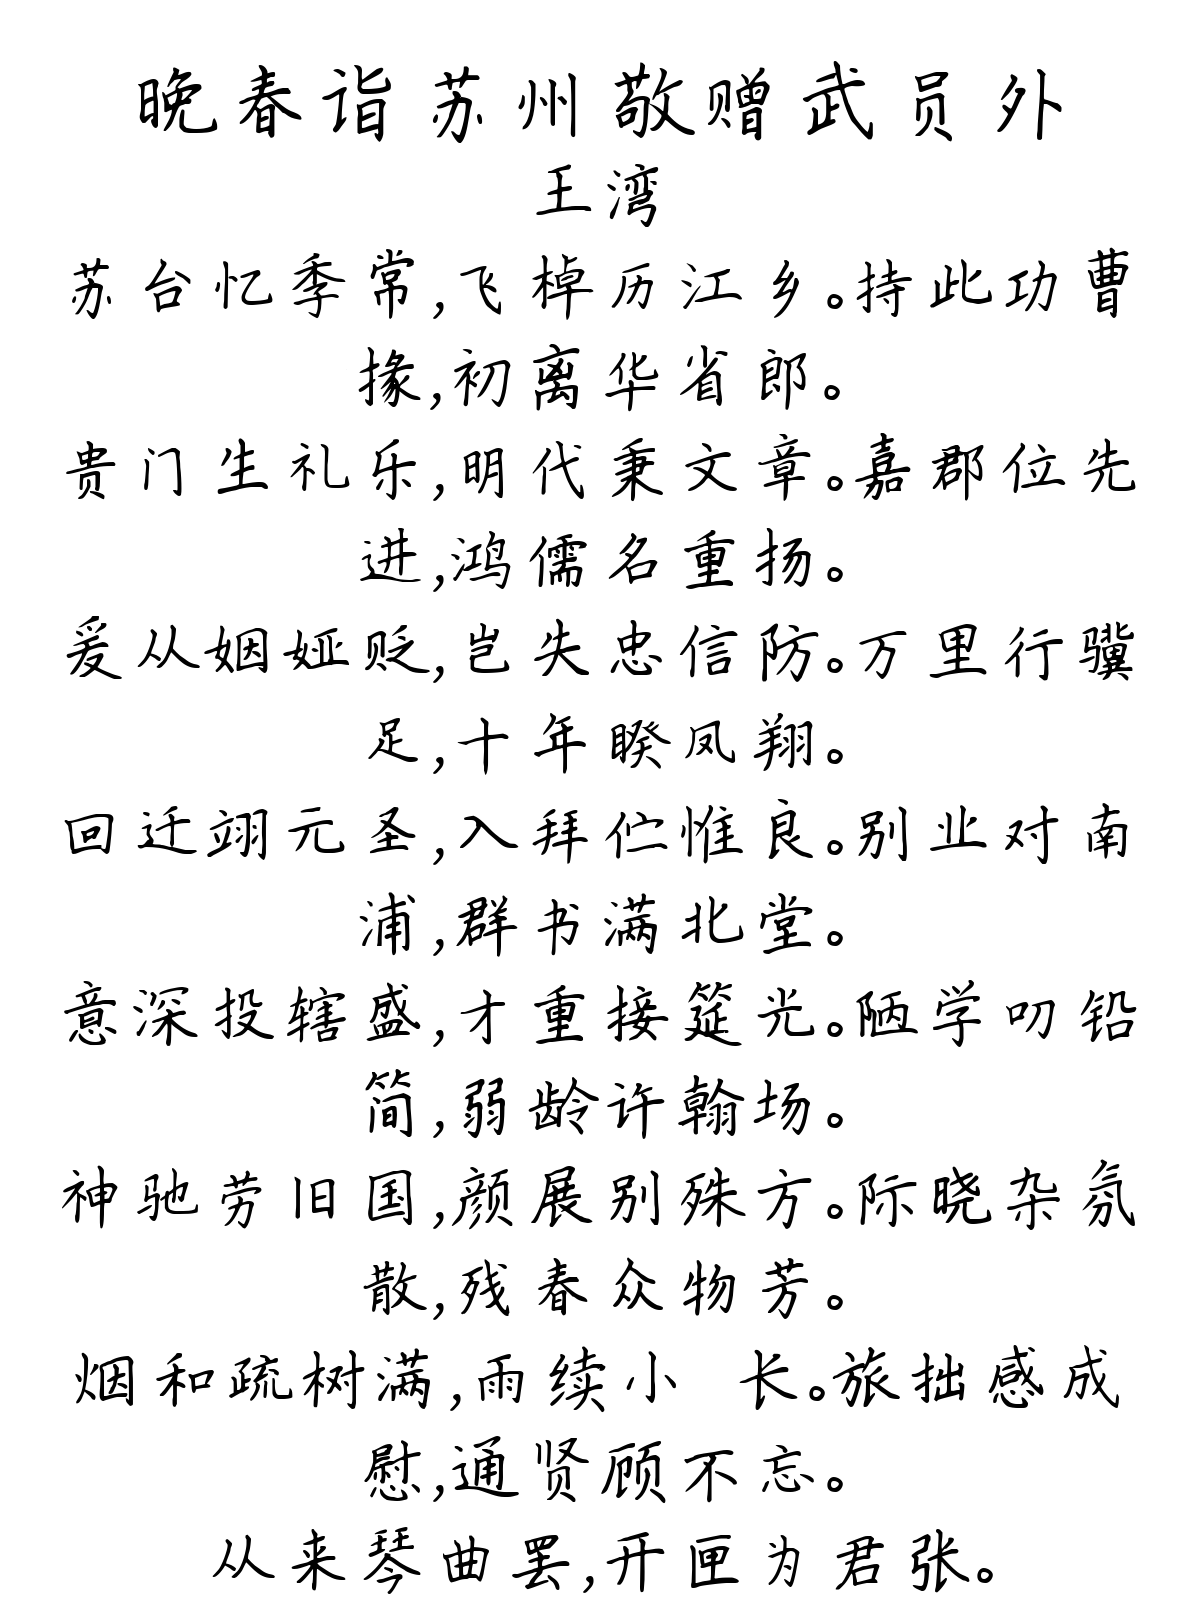 晚春诣苏州敬赠武员外
王湾
苏台忆季常,飞棹历江乡。持此功曹
掾,初离华省郎。
贵门生礼乐,明代秉文章。嘉郡位先
进,鸿儒名重扬。
爰从姻娅贬,岂失忠信防。万里行骥
足,十年睽凤翔。
回迁翊元圣,入拜伫惟良。别业对南
浦,群书满北堂。
意深投辖盛,才重接筵光。陋学叨铅
简,弱龄许翰场。
神驰劳旧国,颜展别殊方。际晓杂氛
散,残春众物芳。
烟和疏树满,雨续小 长。旅拙感成
慰,通贤顾不忘。
从来琴曲罢,开匣为君张。